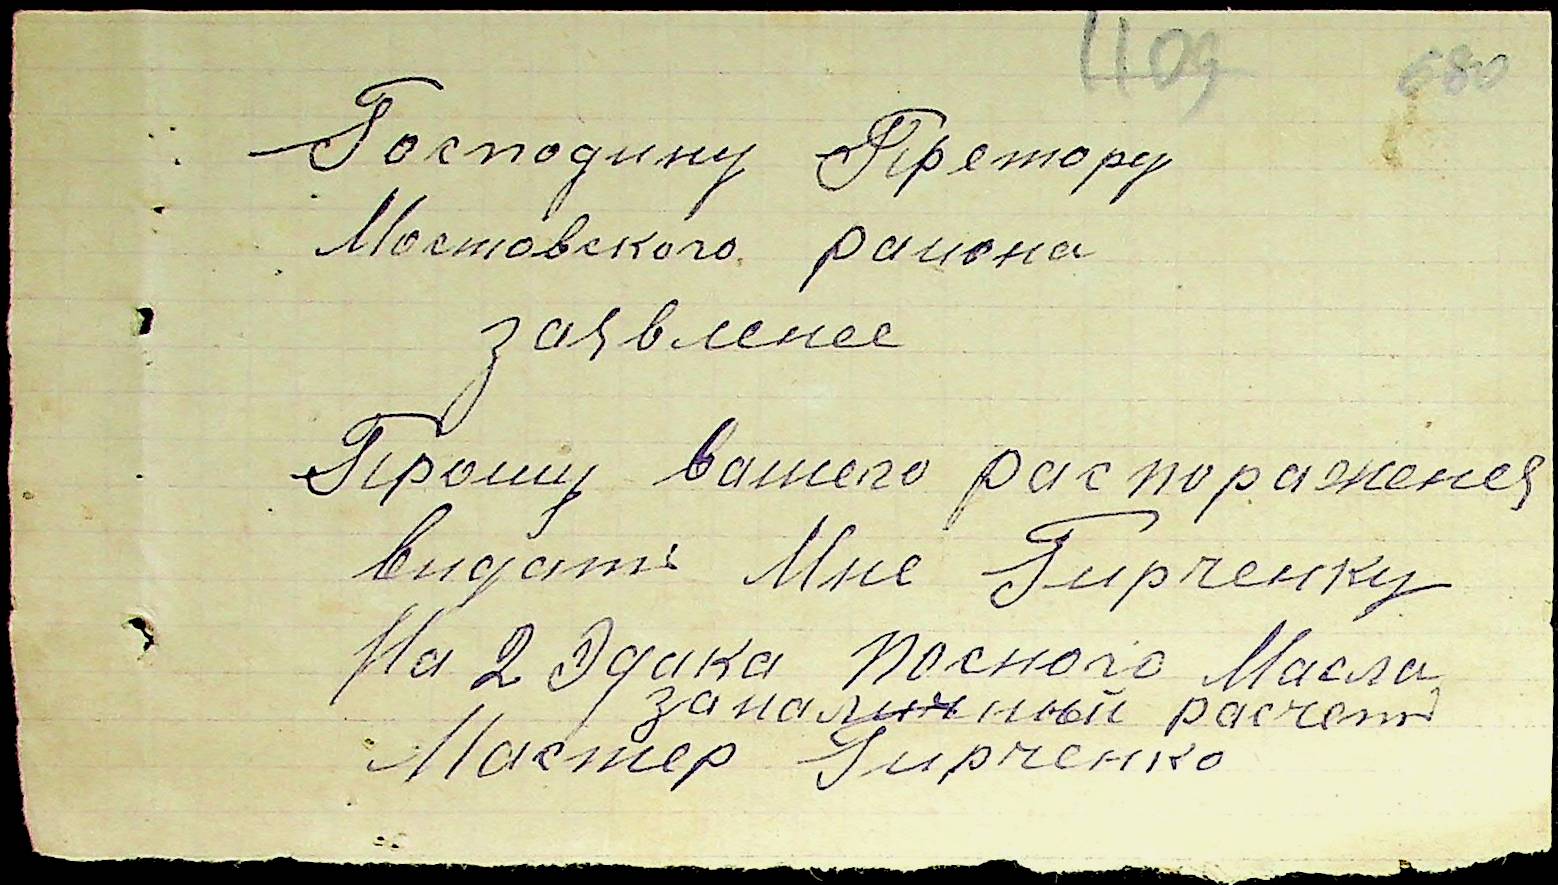 1109 680
Господину Претору
Мостовского раиона
заявление
Прошу вашего распоражения
видать Мне Гирченку
На 2 Едака посного Масла
заналичнный расчет
Мастер Гирченко